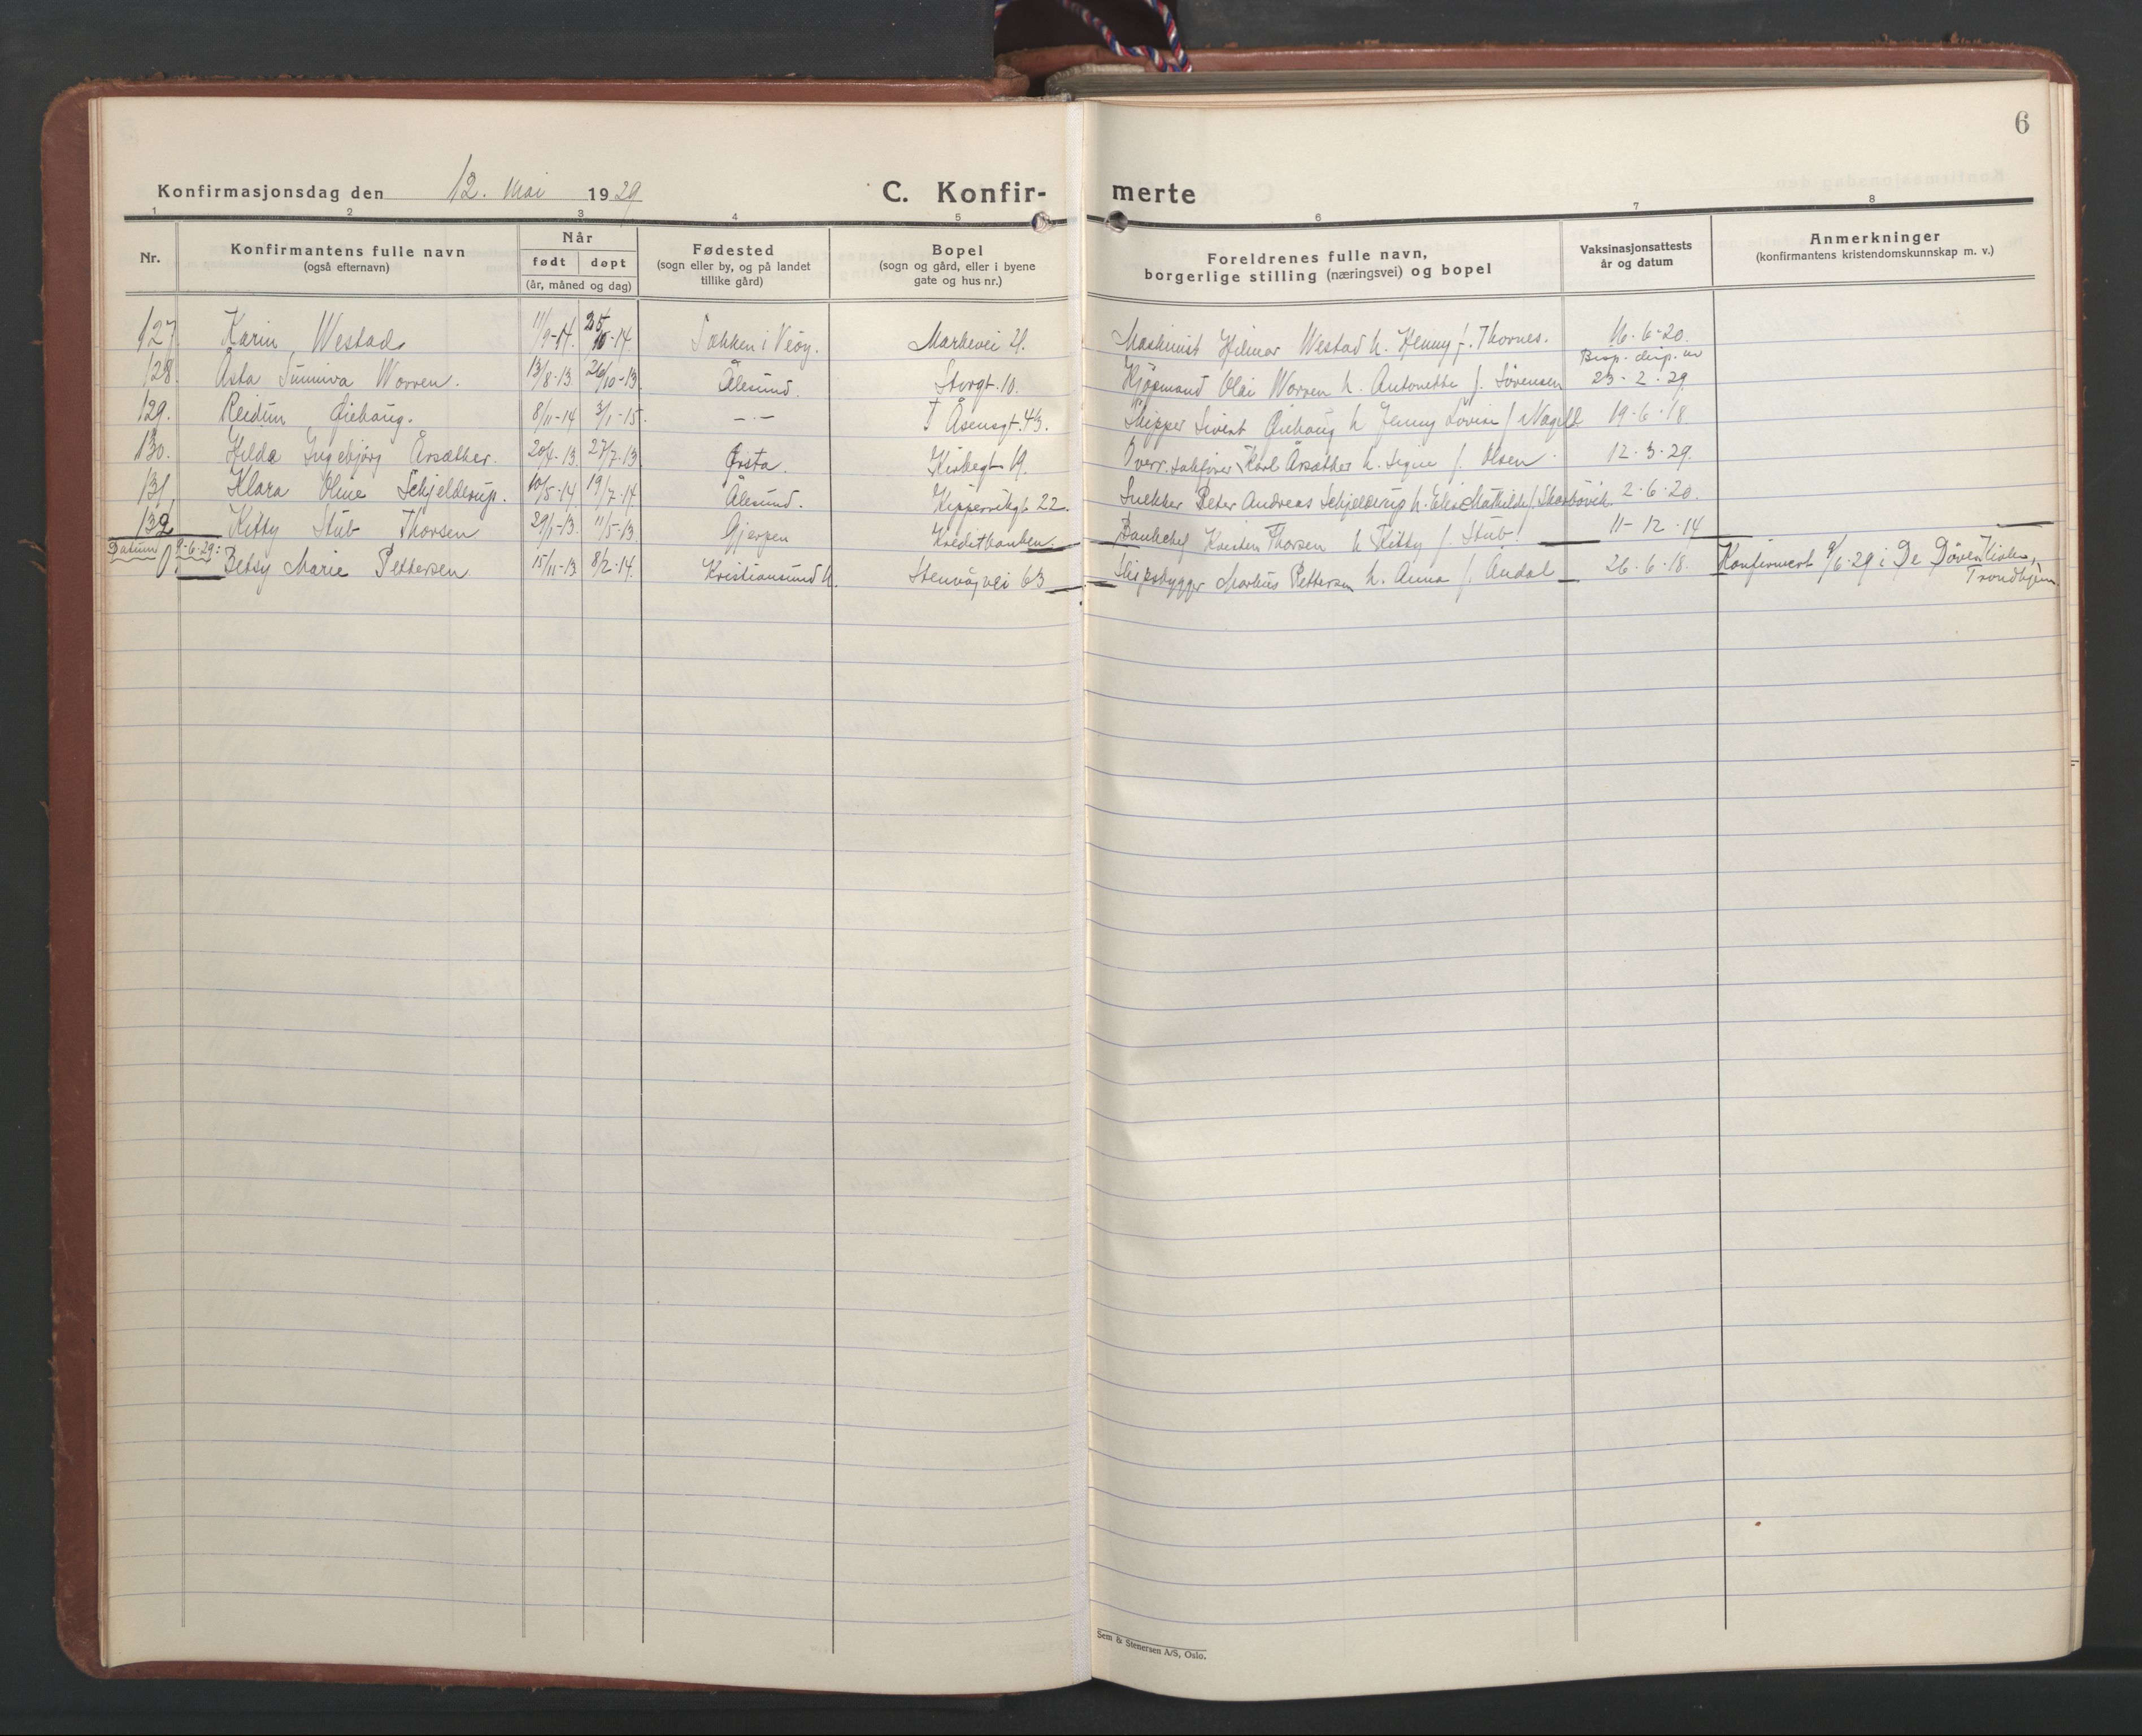 6
Konfirmasjonsdag den 12. Mai 1929 C. Konfir- merte
1 2 3 4 5 6 7 8
Nr. Konfirmantens fulle navn (også efternavn) Når født døpt (år, måned og dag) Fødested (sogn eller by, og på landet tillike gård) Bopel (sogn og gård, eller i byene gate og hus nr.) Foreldrenes fulle navn, borgerlige stilling (næringsvei) og bopel Vaksinasjonsattests år og datum Anmerkninger (konfirmantens kristendomskunnskap m. v.)
127 Karin Westad 11/9-14. 25/10-14 Sekken i Veøy. Markevei 21. Maskinist Hilmar Westad h. Henny f. Thornes. 16-6-20.
128. Åsta Sunniva Worren. 13/8-13. 26/10-13. Ålesund. Storgt. 10. Kjøpmand Olai Worren h. Antonette f. Sørensen Bisp. disp. av 23-2-29.
129. Reidun Giehaug. 8/11-14 3/1-15. -"- I Åsensgt. 43. Skipper Sivert Giehaug h Jenny Lovise f Nagell 19-6-18
130. Hilda Ingebjørg Årsæther. 20/4-13. 27/7-13 Ørsta. Kirkegt. 19. Overr.sakfører Karl Årsæther h. Signe f. Olsen 12-3-29.
131, Klara Oline Schjelderup. 10/5-14. 19/7-14. Ålesund. Kippervikgt 22. Snekker Peter Andreas Schjelderup h. Elise Mathilde f. Skarbøvik. 2-6-20.
132 Kitty Stub Thorsen 29/1-13. 11/5-13. Gjerpen Kreditbanken. Bankchef Karsten Thorsen h Kitty f. Stub. 11-12-14
Datum 9-6-29: Betsy Marie Pettersen. 15/11-13 8/2-14. Kristiansund N. Stenvågvei 63 Skipsbygger Markus Pettersen h. Anna f. Andal 26-6-18. Konfirmert 9/6-29 i De Døves Kirke, Trondhjem.
Sem & Stenersen A/S, Oslo.